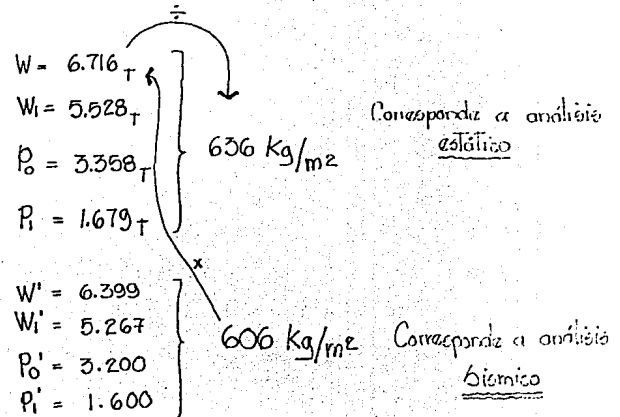 ÷
W = 6.716 T
W1 = 5.528 T
Po = 3.358 T
P1 = 1.679 T
636 Kg/m2
Corresponde a análisis
estático
x
W' = 6.399
W1' = 5.267
Po' = 3.200
P1' = 1.600
606 Kg/m2
Corresponde a análisis
sísmico